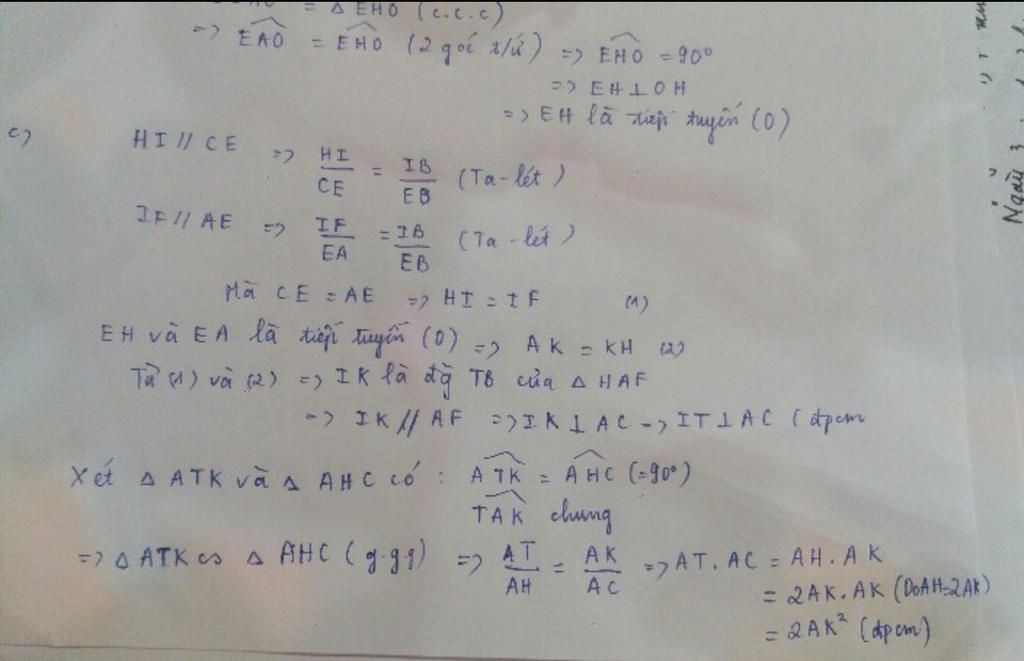 = Δ EHO (c.c.c)
=> EAO = EHO (2 góc t/ứ) => EHO = 90°
=> EH ⊥ OH
=> EH là tiếp tuyến (O)
c) HI // CE => HI/CE = IB/EB (Ta-lét)
IF // AE => IF/EA = IB/EB (Ta-lét)
Mà CE = AE => HI = IF (1)
EH và EA là tiếp tuyến (O) => AK = KH (2)
Từ (1) và (2) => IK là đg TB của Δ HAF
=> IK // AF => IK ⊥ AC => IT ⊥ AC (đpcm
Xét Δ ATK và Δ AHC có : ATK = AHC (=90°)
TAK chung
=> Δ ATK ∽ Δ AHC (g.g.g) => AT/AH = AK/AC => AT.AC = AH.AK
= 2AK.AK (Do AH=2AK)
= 2AK² (đpcm)
Ngày 3